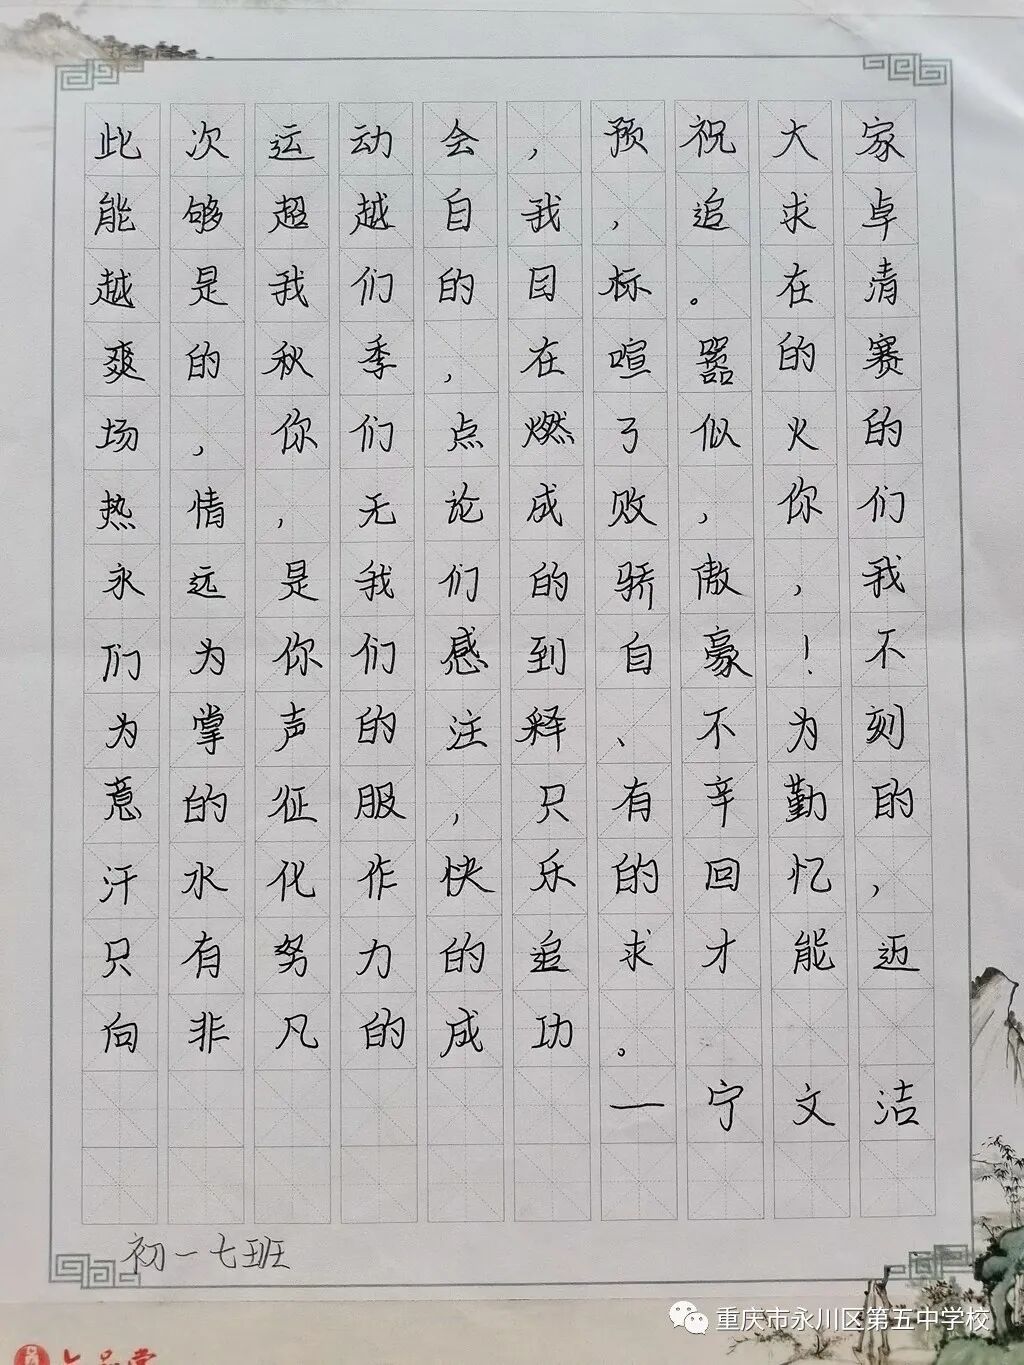 此次运动会,预祝大家
能够超越自我,追求卓
越是我们的目标。在清
爽的秋季,在喧嚣的赛
场,你们点燃了似火的
热情,无论成败,你们
永远是我们的骄傲,我
们为你们感到自豪!不
为掌声的注释、不为刻
意的征服,只有辛勤的
汗水化作快乐的回忆,
只有努力的追求才能迈
向非凡的成功。
一宁文洁
初一七班
重庆市永川区第五中学校